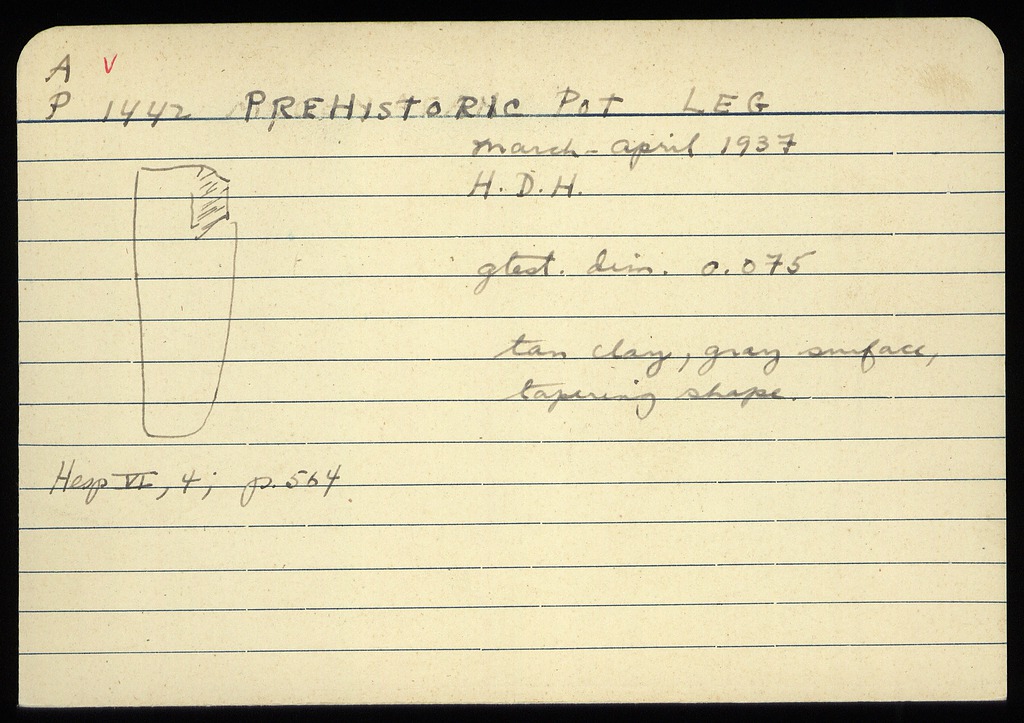 A V
P 1442 PREHISTORIC POT LEG
March - April 1937
H. D. H.
gtest. dim. 0.075
tan clay, gray surface,
tapering shape.
Hesp VI, 4; p. 564